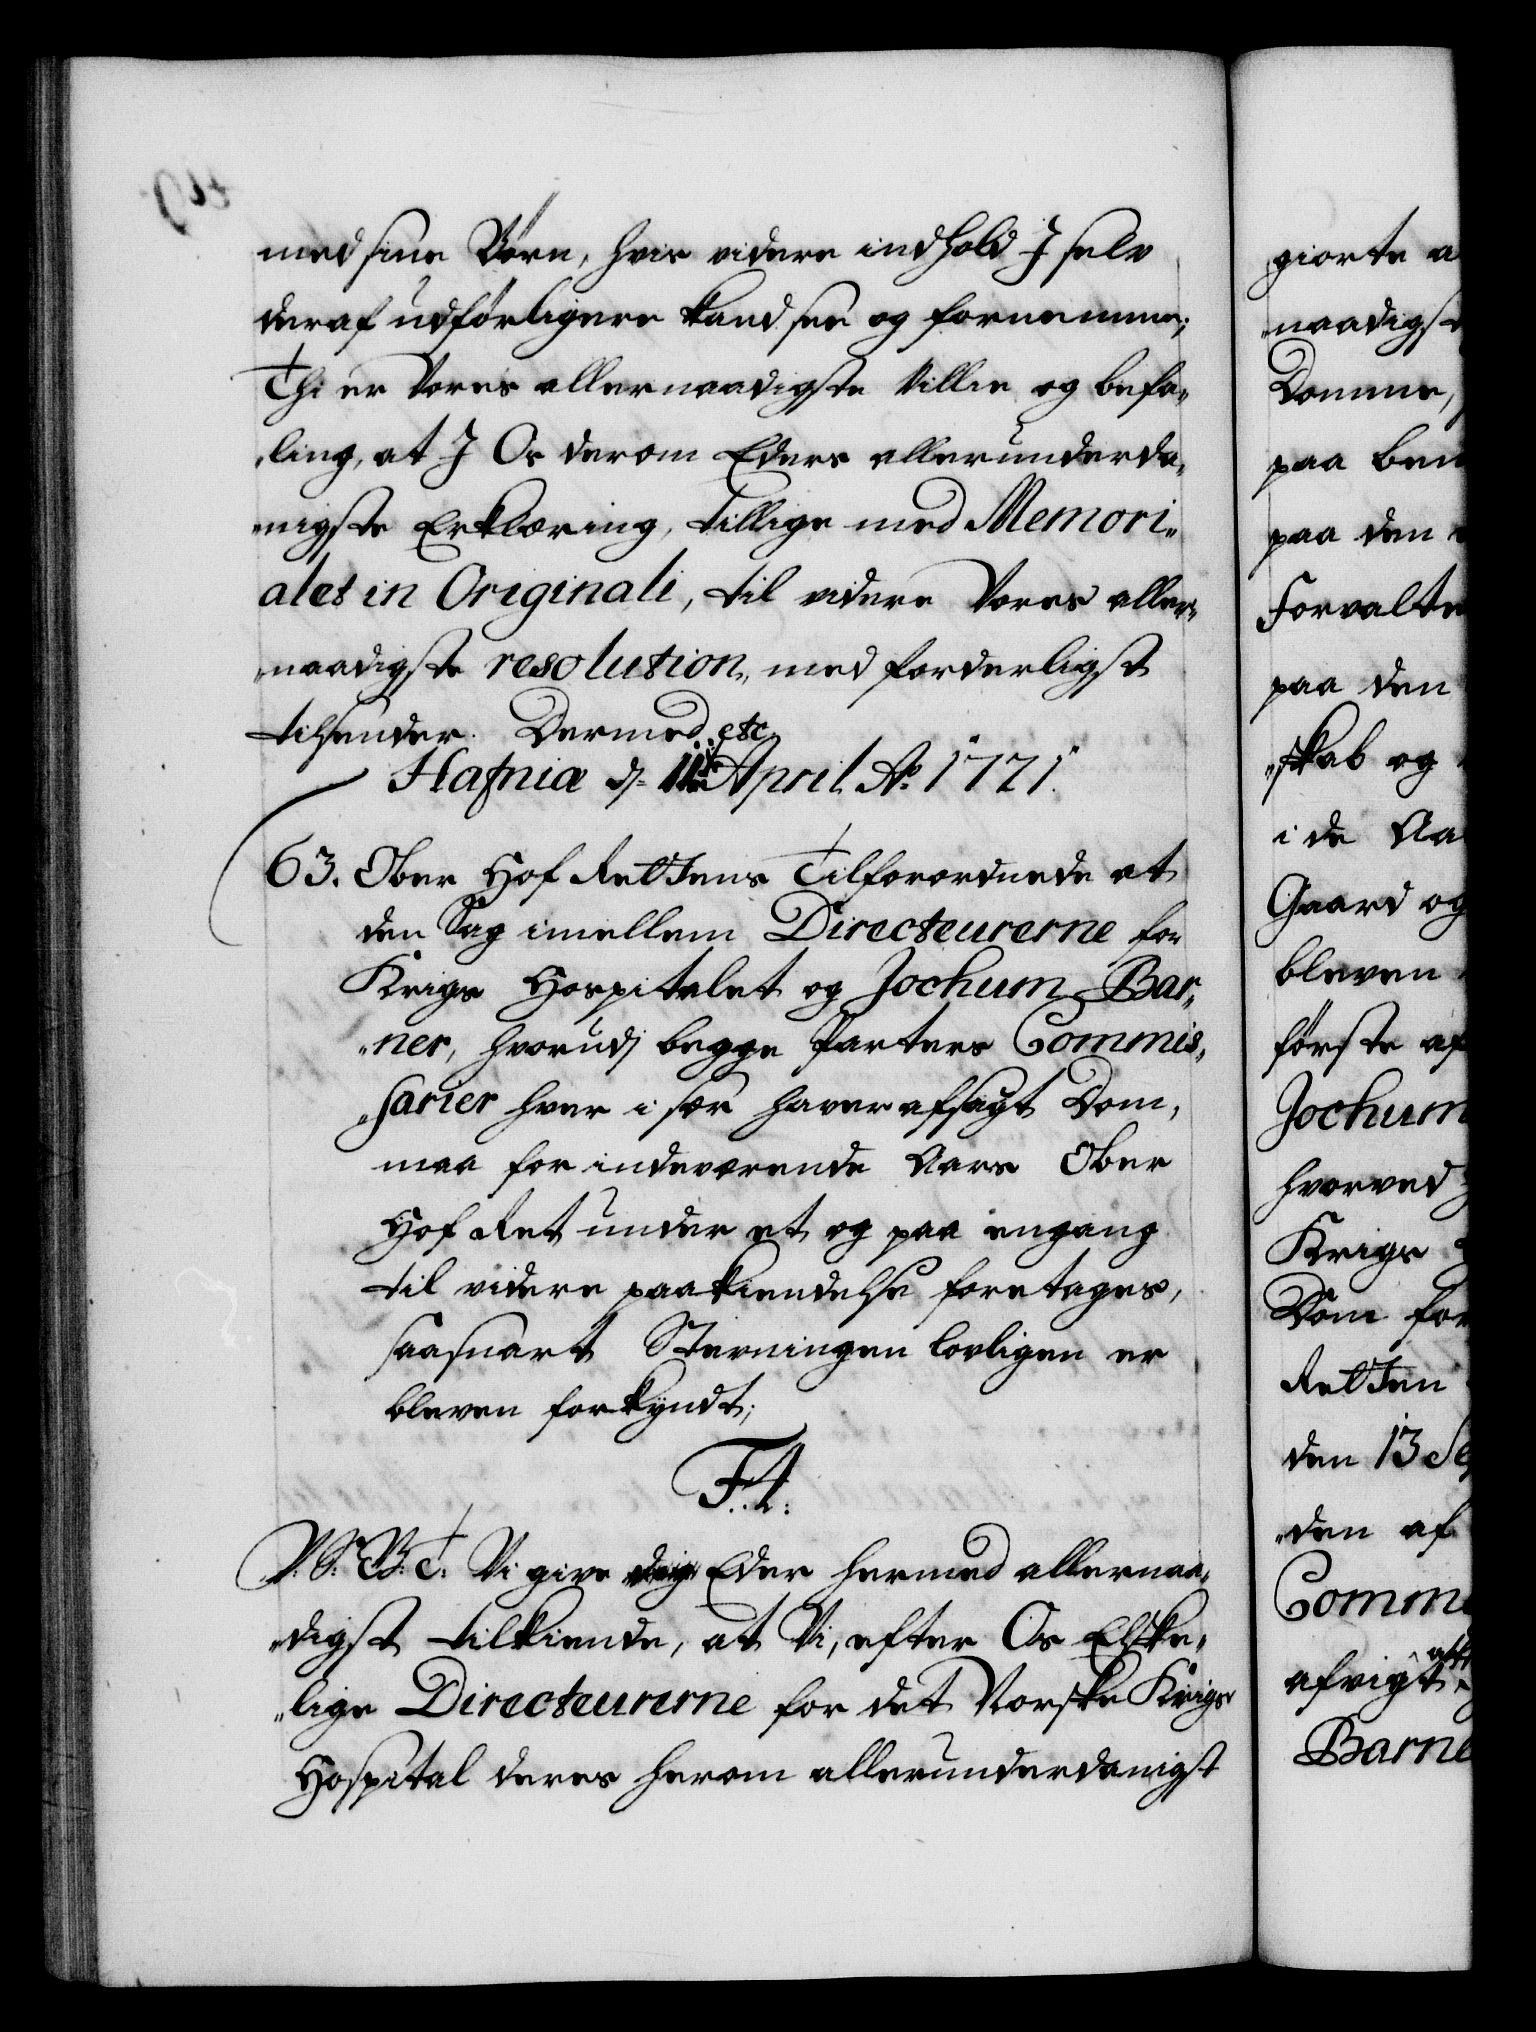 med sine Børn, hvis videre indhold I selv
deraf udførligere kand see og fornemme;
Thi er Vores allernaadigste Villie og befa„
„ling, at I Os derom Eders allerunderda„
„nigste Erklæring, tillige med Memori„
alet in Originali, til videre Vores aller„
„naadigste resolution, med forderligst
tilsender. Dermed etc.
Hafniæ d. 11te April Ao. 1771.
63. Ober Hof Rettens Tilforordnede at
den Sag imellem Directeurerne for
Krigs Hospitalet og Jochum Bar„
„ner, hvorudj begge Parters Commis„
„sarier hver i sær haver afsagt Dom,
maa for indeværende Aars Ober
Hof Ret under et og paa engang
til videre paakiendelse foretages,
saasnart Stevningen lovligen er
bleven forkyndt;
F. 4.
V. S. G. B. T. Vi give Eder hermed allernaa„
„digst tilkiende, at Vi, efter Os Elske„
„lige Directeurerne for det Norske Krigs
Hospital deres herom allerunderdanigst
giorte a
naadigst
Domme,
paa ben
paa den
Forvalte
paa den
„skab og
i de Aa
Gaard og
bleven
første af
Jochum
hvorved
Krigs
Dom for
Retten
den 13 Se
„den af
Comm
afvigt
Barne